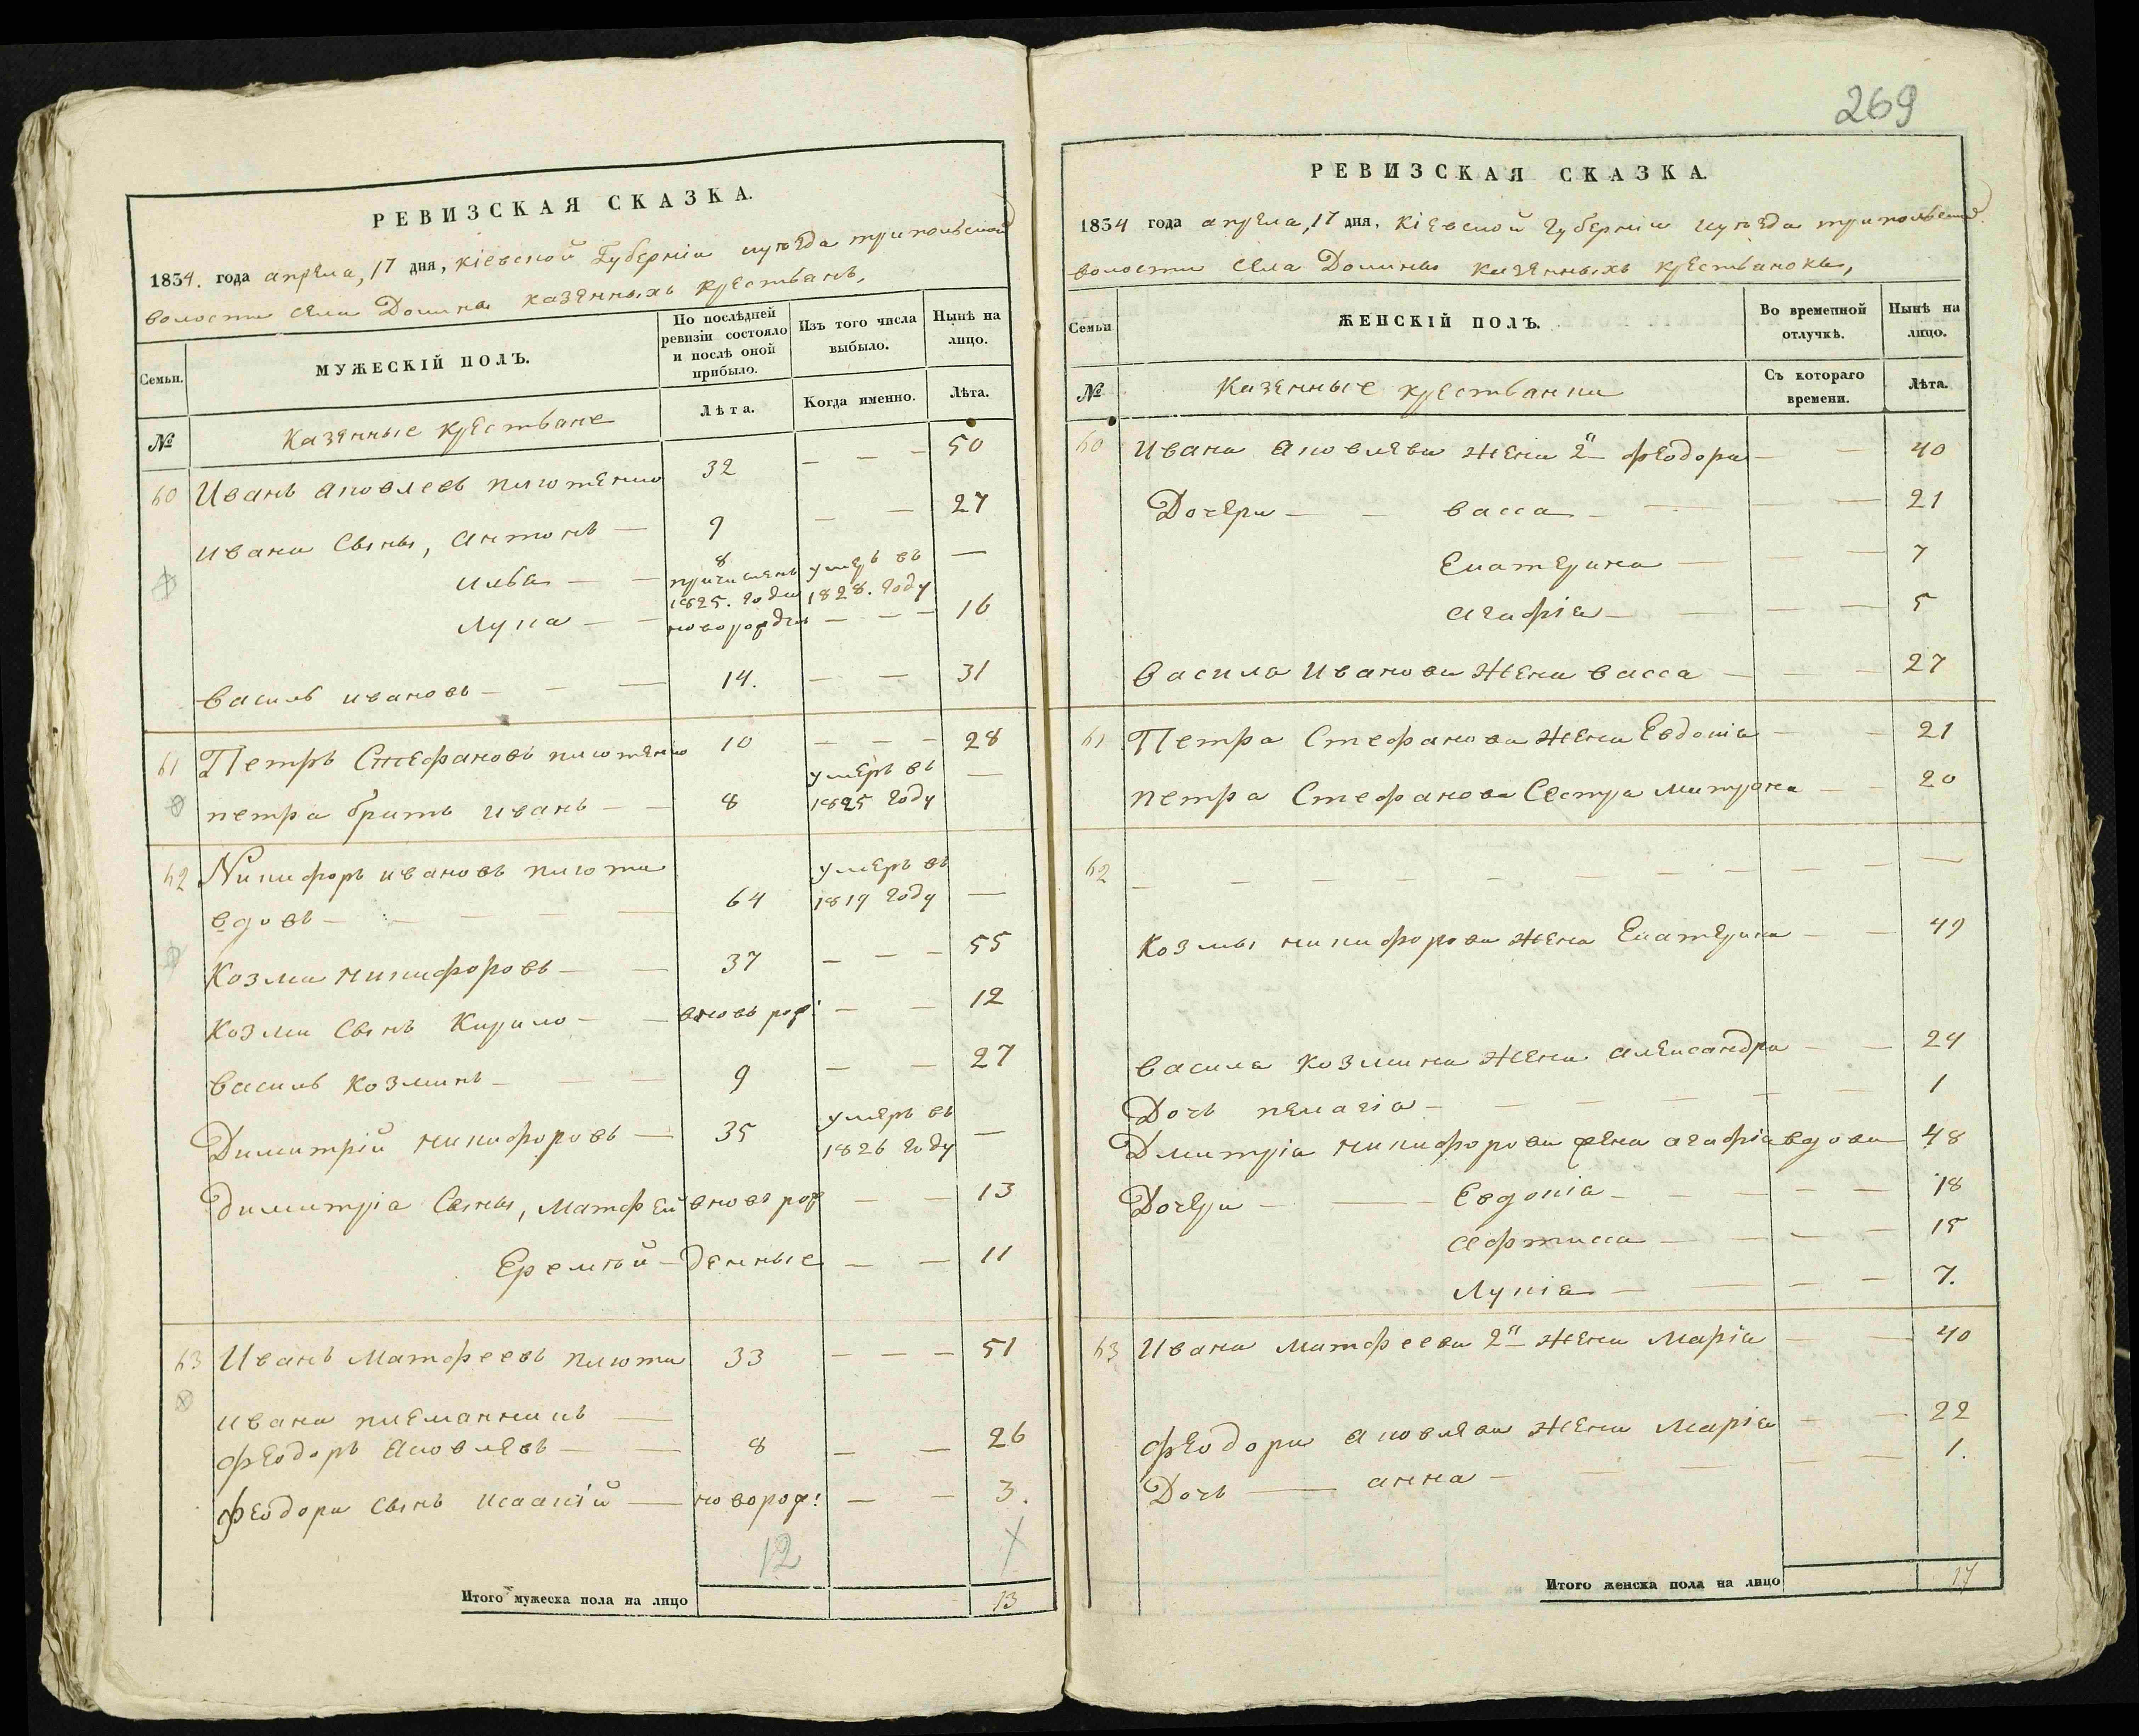 269
РЕВИЗСКАЯ СКАЗКА.
1834. года апреля, 17 дня, Кіевской Губерніи и уезда трипольской
волости села Долины казенныхъ крестьянъ,
Семьи.
МУЖЕСКІЙ ПОЛЪ.
По послѣдней ревизіи состояло и послѣ оной прибыло.
Изъ того числа выбыло.
Нынѣ на лицо.
№
Казенные крестьяне
Лѣта.
Когда именно.
Лѣта.
60 Иванъ Яковлевъ плютенко 32 — — — 50
Ивана Сыны, Антонъ — 9 — — 27
Илья — — 8 причисленъ 1825. года умеръ въ 1828. году —
Лука — — новорожден — — 16
Василь ивановъ — — — 14. — — 31
61 Петръ Стефановъ плютенко 10 — — — 28
петра братъ иванъ — — 8 умеръ въ 1825 году —
62 Никифоръ ивановъ плюта
вдовъ — — — — — 64 умеръ въ 1819 году —
Козма никифоровъ — — 37 — — — 55
Козми Сынъ Кирило — — вновь рож: — — 12
Василь Козминъ — — — 9 — — 27
Димитрій никифоровъ — 35 умеръ въ 1826 году —
димитрія Сыны, Матфей вновь рож — — 13
Еремѣй — денные — — 11
63 Иванъ Матфеевъ плюта 33 — — — 51
ивана племанникъ —
феодоръ Яковлевъ — — 8 — — 26
феодора Сынъ исаакій — новорож: — — 3.
12
Итого мужеска пола на лицо 13
РЕВИЗСКАЯ СКАЗКА.
1834 года апреля, 17 дня, Кіевской губерніи и уезда трипольской
волости села Долины казенныхъ крестьянокъ,
Семьи
ЖЕНСКІЙ ПОЛЪ.
Во временной отлучкѣ.
Нынѣ на лицо.
№
Казенные крестьянки
Съ котораго времени.
Лѣта.
60 Ивана Яковлева жена 2я феодора — — 40
Дочери — — васса — — — — 21
Екатерина — — — 7
агафія — — — — 5
Василя Иванова жена васса — — — 27
61 Петра Стефанова жена Евдокія — — 21
петра Стефанова Сестра Матрона — — 20
62 — — — — — — — — — — —
Козмы никифорова жена Екатерина — — 49
Василя Козмина жена александра — — 24
Дочь пелагія — — — — — — 1
Дмитрія никифорова жена агафія вдова 48
Дочери — — Евдокія — — — — 18
Афтиса — — — — 15
Лукія — — — — 7.
63 Ивана Матфеева 2я жена Марія — — 40
феодора Яковлева жена Марія — — 22
Дочь — анна — — — — — 1.
Итого женска пола на лицо 17